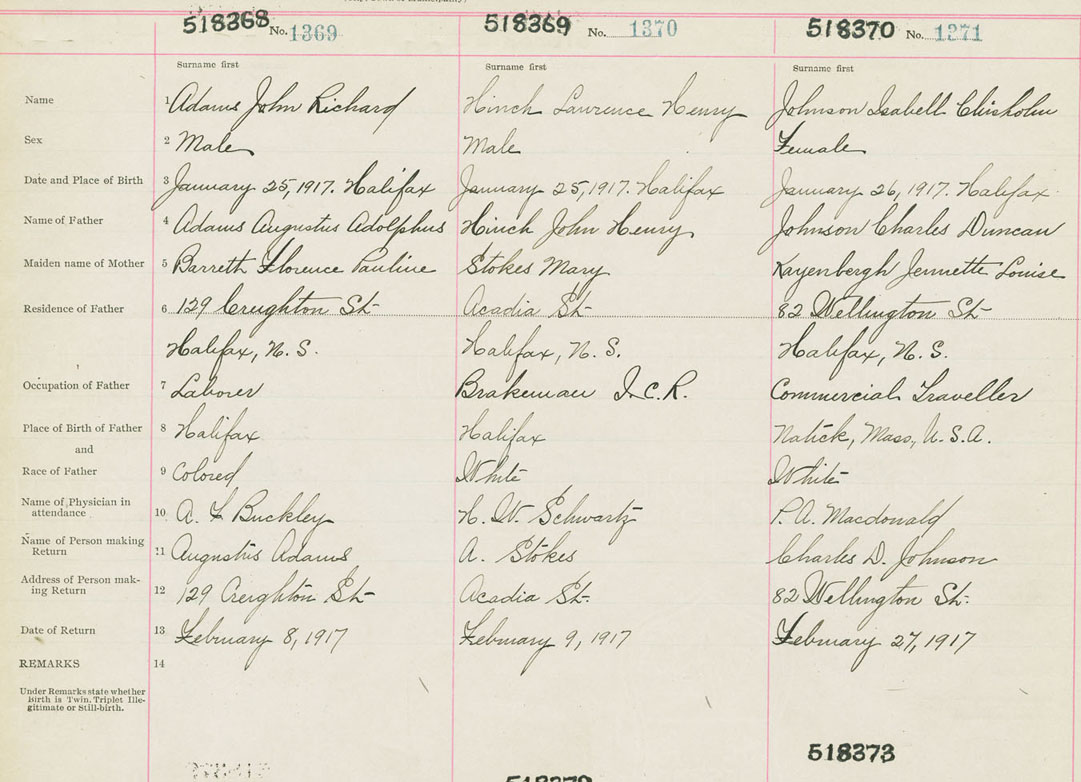 518368 No. 1369 518369 No. 1370 518370 No. 1371
Surname first Surname first Surname first
Name 1 Adams John Richard Hinch Lawrence Henry Johnson Isabell Chisholm
Sex 2 Male Male Female
Date and Place of Birth 3 January 25, 1917. Halifax January 25, 1917. Halifax January 26, 1917. Halifax
Name of Father 4 Adams Augustus Adolphus Hinch John Henry Johnson Charles Duncan
Maiden name of Mother 5 Barreth Florence Pauline Stokes Mary Kayenbergh Jennette Louise
Residence of Father 6 129 Creughton St Acadia St 82 Wellington St
Halifax, N.S. Halifax, N.S. Halifax, N.S.
Occupation of Father 7 Laborer Brakeman I.C.R. Commercial Traveller
Place of Birth of Father 8 Halifax Halifax Natick, Mass, U.S.A.
and
Race of Father 9 Colored White White
Name of Physician in
attendance 10 A. L Buckley H. W. Schwartz P. A. Macdonald
Name of Person making
Return 11 Augustus Adams A. Stokes Charles D. Johnson
Address of Person mak-
ing Return 12 129 Creighton St Acadia St. 82 Wellington St.
Date of Return 13 February 8, 1917 February 9, 1917 February 27, 1917
REMARKS 14
Under Remarks state whether
Birth is Twin, Triplet Ille-
gitimate or Still-birth.
518373